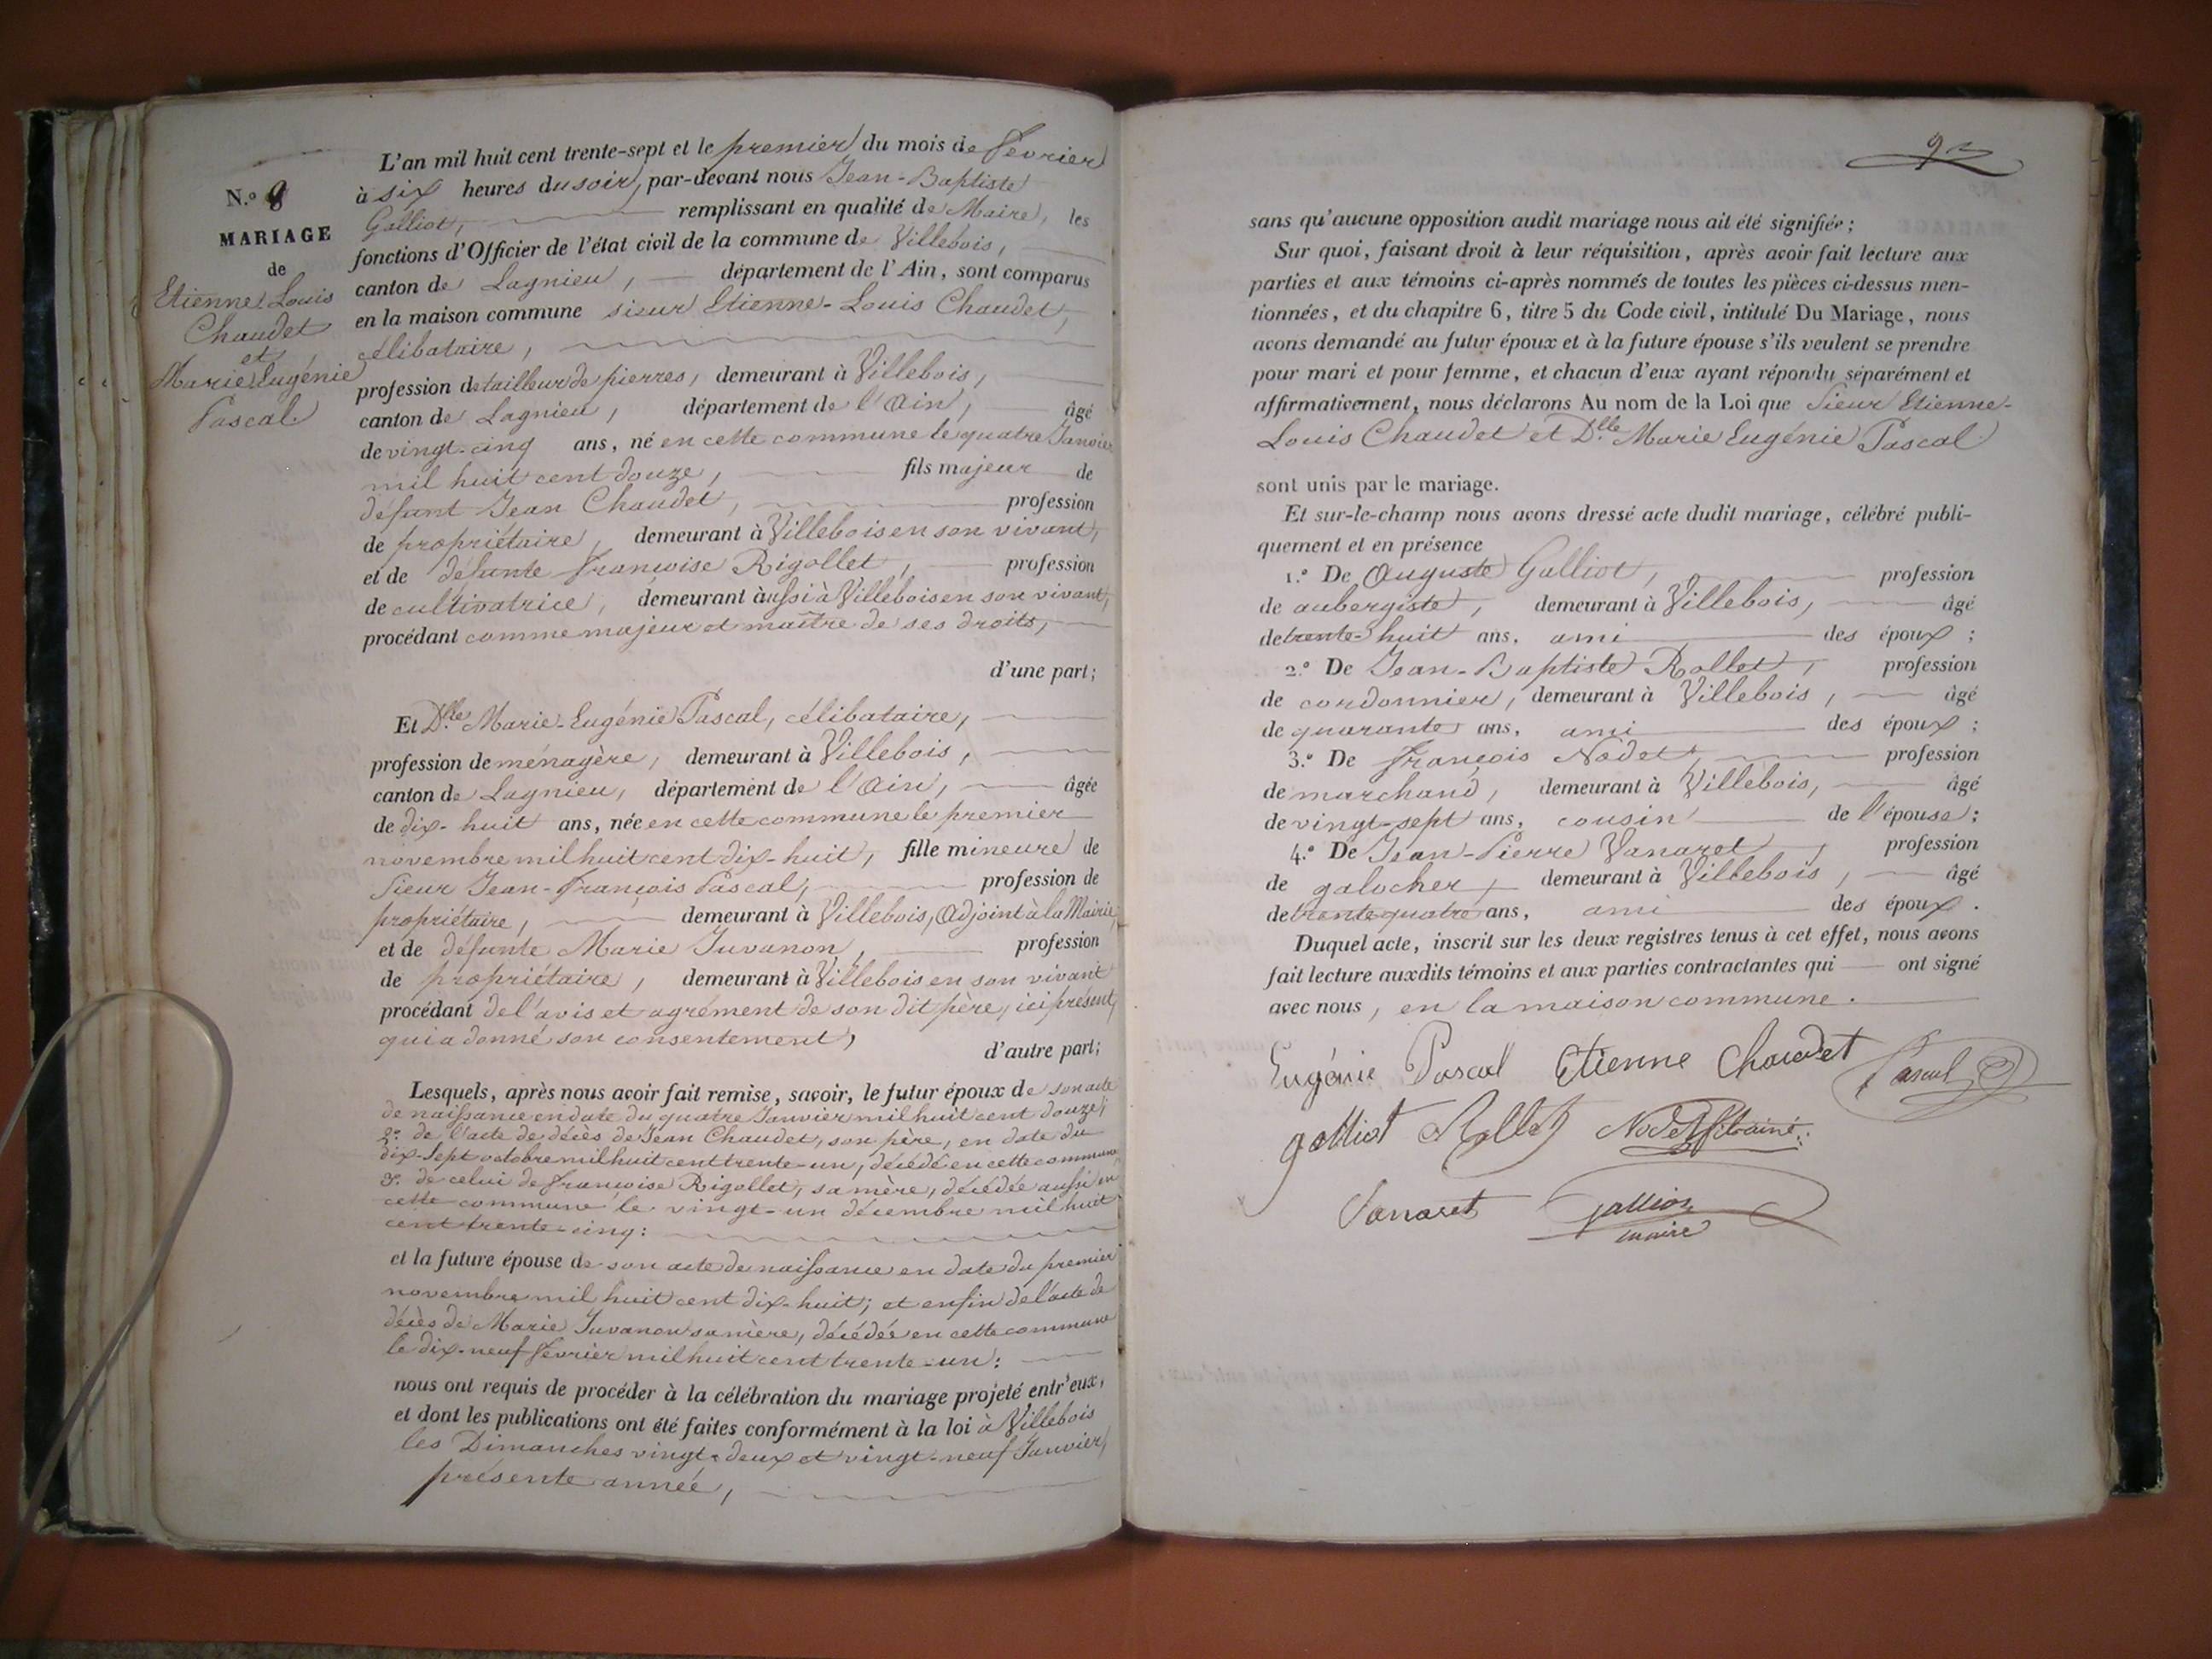 L'an mil huit cent trente-sept et le premier du mois de février
à six heures du soir, par-devant nous Jean-Baptiste
Galliot, remplissant en qualité de Maire, les
fonctions d'Officier de l'état civil de la commune de Villebois,
canton de Lagnieu, département de l'Ain, sont comparus
en la maison commune sieur Etienne-Louis Chaudet,
célibataire,
profession de tailleur de pierres, demeurant à Villebois,
canton de Lagnieu, département de l'Ain, âgé
de vingt-cinq ans, né en cette commune le quatre Janvier
mil huit cent douze, fils majeur de
défunt Jean Chaudet, profession
de propriétaire, demeurant à Villebois en son vivant,
et de défunte françoise Rigollet, profession
de cultivatrice, demeurant aussi à Villebois en son vivant,
procédant comme majeur et maître de ses droits,
d'une part;
Et Dlle Marie-Eugénie Pascal, célibataire,
profession de ménagère, demeurant à Villebois,
canton de Lagnieu, département de l'Ain, âgée
de dix-huit ans, née en cette commune le premier
novembre mil huit cent dix-huit, fille mineure de
Sieur Jean-françois Pascal, profession de
propriétaire, demeurant à Villebois, Adjoint à la Mairie,
et de défunte Marie Juvanon, profession
de propriétaire, demeurant à Villebois en son vivant
procédant de l'avis et agrément de son dit père, ici présent,
qui a donné son consentement,
d'autre part;
Lesquels, après nous avoir fait remise, savoir, le futur époux de son acte
de naissance en date du quatre Janvier mil huit cent douze;
2° de l'acte de décès de Jean Chaudet, son père, en date du
dix-sept octobre mil huit cent trente-un, décédé en cette commune
3° de celui de françoise Rigollet, sa mère, décédée aussi en
cette commune le vingt-un décembre mil huit
cent trente-cinq:
et la future épouse de son acte de naissance en date du premier
novembre mil huit cent dix-huit; et enfin de l'acte de
décès de Marie Juvanon sa mère, décédée en cette commune
le dix-neuf février mil huit cent trente-un:
nous ont requis de procéder à la célébration du mariage projeté entr'eux,
et dont les publications ont été faites conformément à la loi à Villebois
les Dimanches vingt-deux et vingt-neuf Janvier,
présente année,
N.°
MARIAGE
de
Etienne Louis
Chaudet
et
Marie Eugénie
Pascal
sans qu'aucune opposition audit mariage nous ait été signifiée;
Sur quoi, faisant droit à leur réquisition, après avoir fait lecture aux
parties et aux témoins ci-après nommés de toutes les pièces ci-dessus men-
tionnées, et du chapitre 6, titre 5 du Code civil, intitulé Du Mariage, nous
avons demandé au futur époux et à la future épouse s'ils veulent se prendre
pour mari et pour femme, et chacun d'eux ayant répondu séparément et
affirmativement, nous déclarons Au nom de la Loi que Sieur Etienne-
Louis Chaudet et Dlle Marie Eugénie Pascal
sont unis par le mariage.
Et sur-le-champ nous avons dressé acte dudit mariage, célébré publi-
quement et en présence
1.° De Auguste Galliot, profession
de aubergiste, demeurant à Villebois, âgé
de trente-huit ans, ami des époux;
2.° De Jean-Baptiste Rollet, profession
de cordonnier, demeurant à Villebois, âgé
de quarante ans, ami des époux;
3.° De françois Nodet, profession
de marchand, demeurant à Villebois, âgé
de vingt-sept ans, cousin de l'épouse;
4.° De Jean-Pierre Vanaret, profession
de galocher, demeurant à Villebois, âgé
de trente quatre ans, ami des époux.
Duquel acte, inscrit sur les deux registres tenus à cet effet, nous avons
fait lecture auxdits témoins et aux parties contractantes qui ont signé
avec nous, en la maison commune.
Eugénie Pascal Etienne Chaudet Pascal
galliot Rollet Nodet
Vanaret galliot
maire